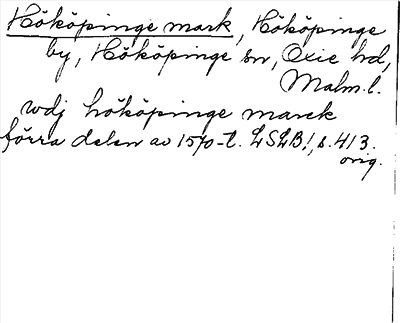 Hököpinge mark, Hököpinge
by, Hököpinge sn, Oxie hd,
Malm.l.
wdj hököpinge marck
förra delen av 1570-t. LSLB!, s. 413.
orig.